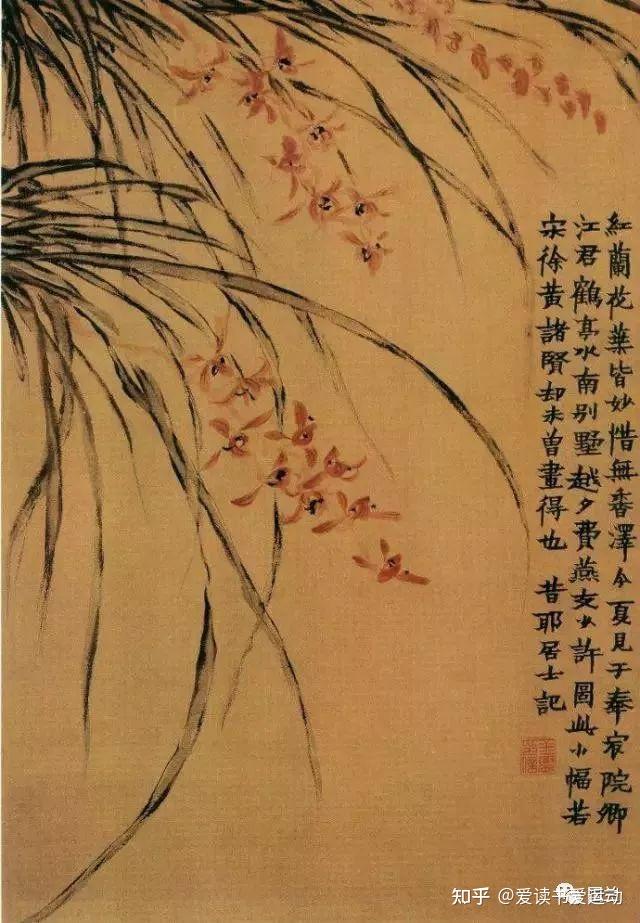 紅蘭花葉皆妙惜無香澤今夏見于奉宸院卿
江君鶴亭水南別墅越夕費燕支少許圖此小幅若
宋徐黃諸賢却未曾畫得也 昔耶居士記
知乎 @爱读书爱运动